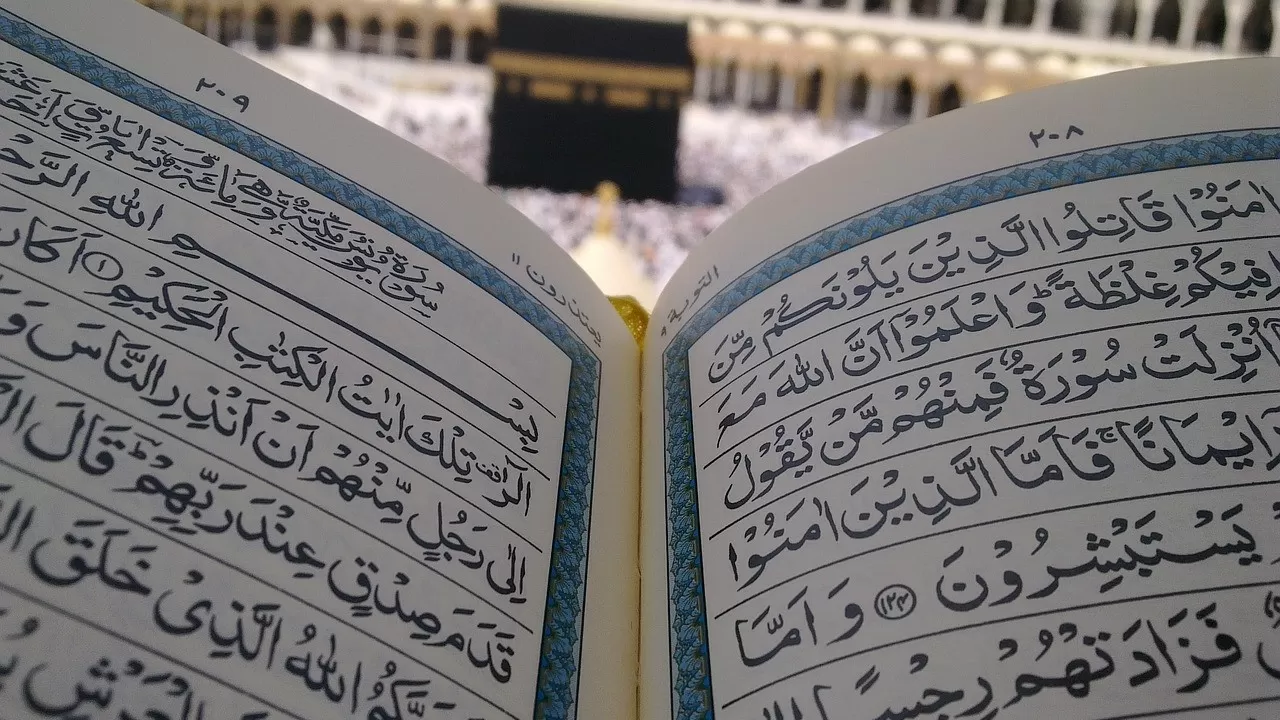 ٢٠٨
التوبة ٩
اٰمَنُوْا قَاتِلُوا الَّذِيْنَ يَلُوْنَكُمْ مِّنَ
فِيْكُمْ غِلْظَةً ؕ وَاعْلَمُوْۤا اَنَّ اللّٰهَ مَعَ
اُنْزِلَتْ سُوْرَةٌ فَمِنْهُمْ مَّنْ يَّقُوْلُ
اِيْمَانًا ۚ فَاَمَّا الَّذِيْنَ اٰمَنُوْا
يَسْتَبْشِرُوْنَ ﴿١٢٤﴾ وَاَمَّا
فَزَادَتْهُمْ رِجْسًا
٢٠٩
يعتذرون ١١
سُوْرَةُ يُوْنُسَ مَكِّيَّةٌ وَّهِيَ مِائَةٌ وَّتِسْعُ اٰيَاتٍ
بِسْمِ اللّٰهِ الرَّحْ
الٓرٰ تِلْكَ اٰيٰتُ الْكِتٰبِ الْحَكِيْمِ ﴿١﴾ اَكَانَ
اِلٰى رَجُلٍ مِّنْهُمْ اَنْ اَنْذِرِ النَّاسَ وَ
قَدَمَ صِدْقٍ عِنْدَ رَبِّهِمْ ؕ قَالَ
رَبَّكُمُ اللّٰهُ الَّذِيْ خَلَقَ
الْعَرْشِ